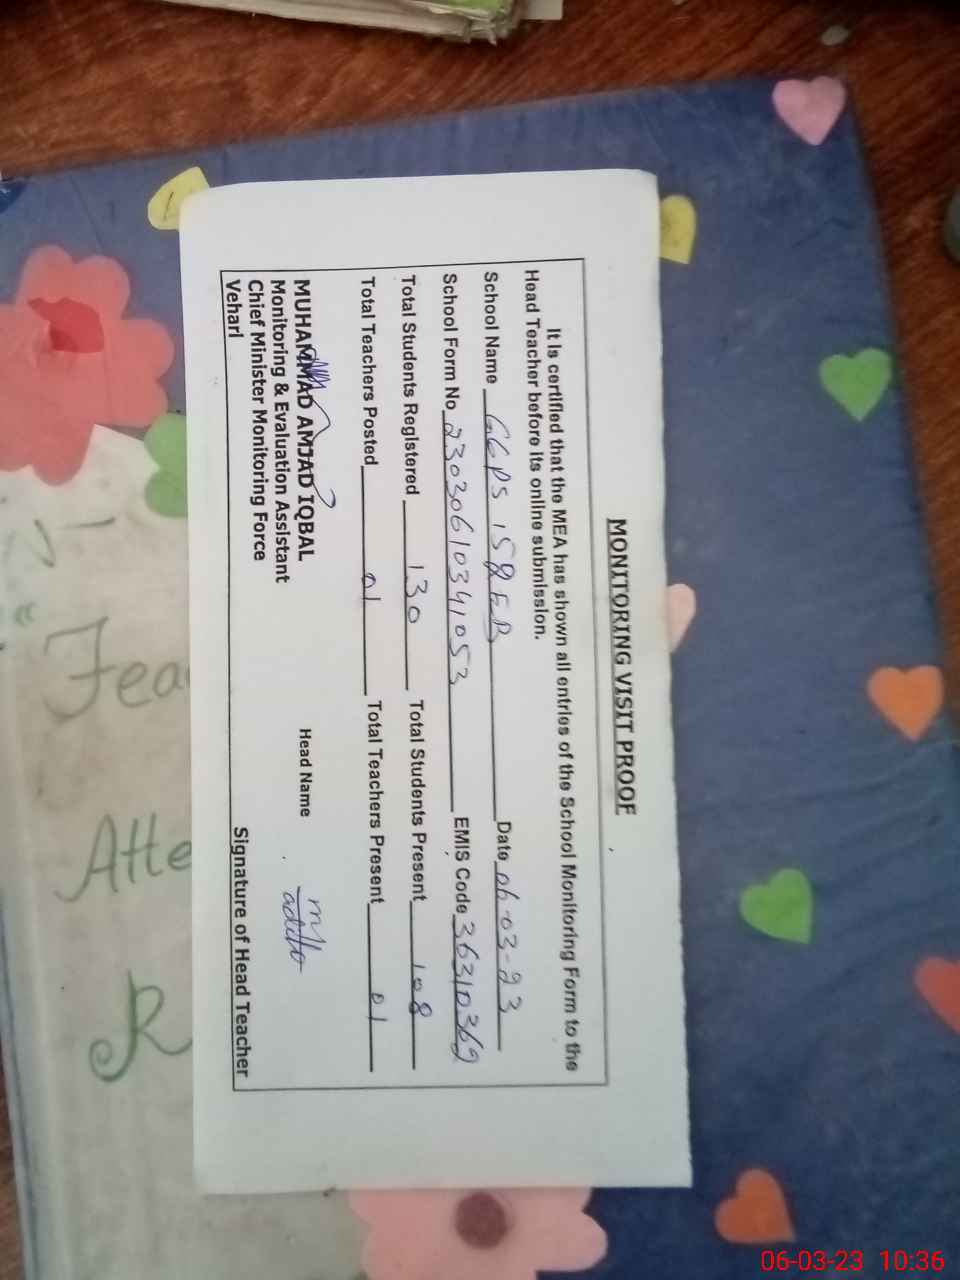 MONITORING VISIT PROOF
It is certified that the MEA has shown all entries of the School Monitoring Form to the
Head Teacher before its online submission.
School Name GGPS 158 EB Date 06-03-23
School Form No 23030610341053 EMIS Code 36310369
Total Students Registered 130 Total Students Present 108
Total Teachers Posted 01 Total Teachers Present 01
MUHAMMAD AMJAD IQBAL Head Name
Monitoring & Evaluation Assistant
Chief Minister Monitoring Force
Vehari Signature of Head Teacher
Tea
Atte
R
06-03-23 10:36